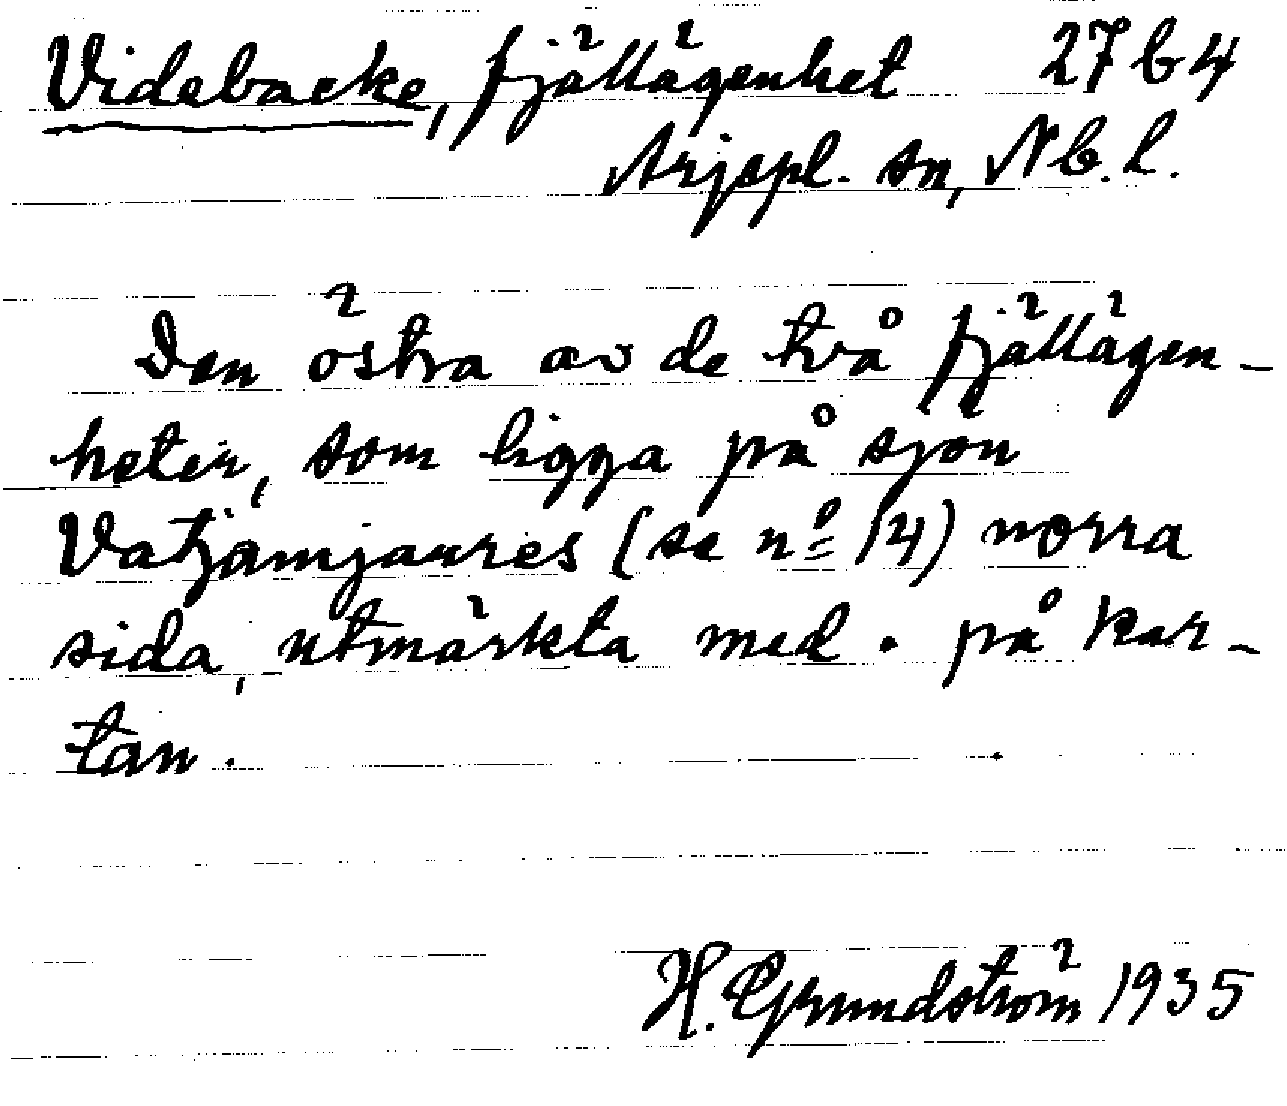 Videbacke, fjällägenhet 27 b 4
Arjepl. sn, Nb. l.
Den östra av de två fjällägen-
heter, som ligga på sjön
Vatjamjaures (se nº 14) norra
sida, utmärkta med . på kar-
tan.
H. Grundström 1935